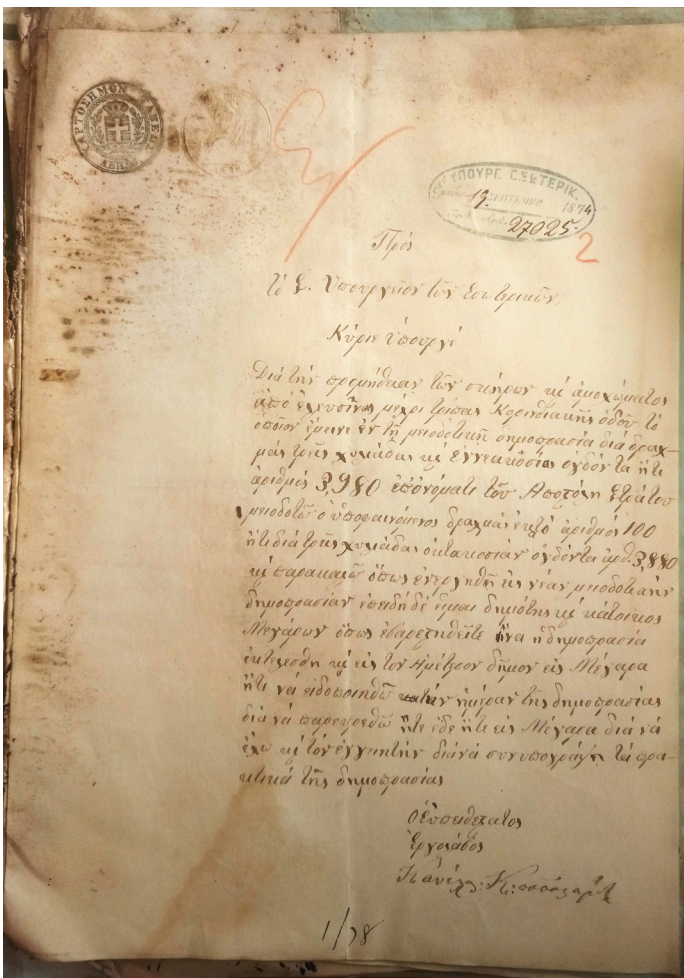 ΧΑΡΤΟΣΗΜΟΝ
ΥΠΟΥΡΓ. ΕΣΩΤΕΡΙΚ.
19. ΣΕΠΤΕΜΒΡ. 1874
27025
2
Πρὸς
Τὸ Σ. Ὑπουργεῖον τῶν Ἐσωτερικῶν
Κύριε Ὑπουργέ
Διὰ τὴν προμήθειαν τῶν σκήρων κὶ ἀμοχώματος
ἀπὸ ἐλευσῖνος μέχρι τρίπας Κορινθιακῆς ὁδοῦ τὸ
ὁποῖον ἔμεινε ἐν τῇ μειοδοτικῇ δημοπρασία διὰ δραχ-
μὰς τρῆς χιλιάδας κὶ ἐννεακόσιας ὀγδόντα ἤτι
ἀριθμός 3,980 ἐπ ὀνόματι τοῦ Ἀποστόλη Στράτου
μειοδοτῶ ὁ ὑποφαινόμενος δραχμὰς ἑκατό ἀριθμός 100
ἤτι διὰ τρῆς χιλιάδας ὀκτακοσίας ὀγδόντα ἀρθ. 3,880
κὶ παρακαλῶ ὅπως ἐνεργηθῆ εἰς νέαν μειοδοτικήν
δημοπρασίαν ἐπειδή δέ εἶμαι δημότης κὶ κάτοικος
Μεγάρων ὅπως εὐαρεστηθεῖτε ἵνα ἡ δημοπρασία
ἐκτελεσθῆ κὶ εἰς τὸν ἡμέτερον δῆμον εἰς Μέγαρα
ἤτι νά εἰδοποιηθῶ τήν ἡμέραν τῆς δημοπρασίας
διὰ νά παρευρεθῶ ἤτε ἐδέ ἤτι εἰς Μέγαρα διὰ νά
ἔχω κὶ τόν ἐγγυητήν διὰ νά συνυπογράψη τὰ πρα-
κτικά τῆς δημοπρασίας
ὁ Εὐπειθέστατος
Ἐργολάβος
1/78